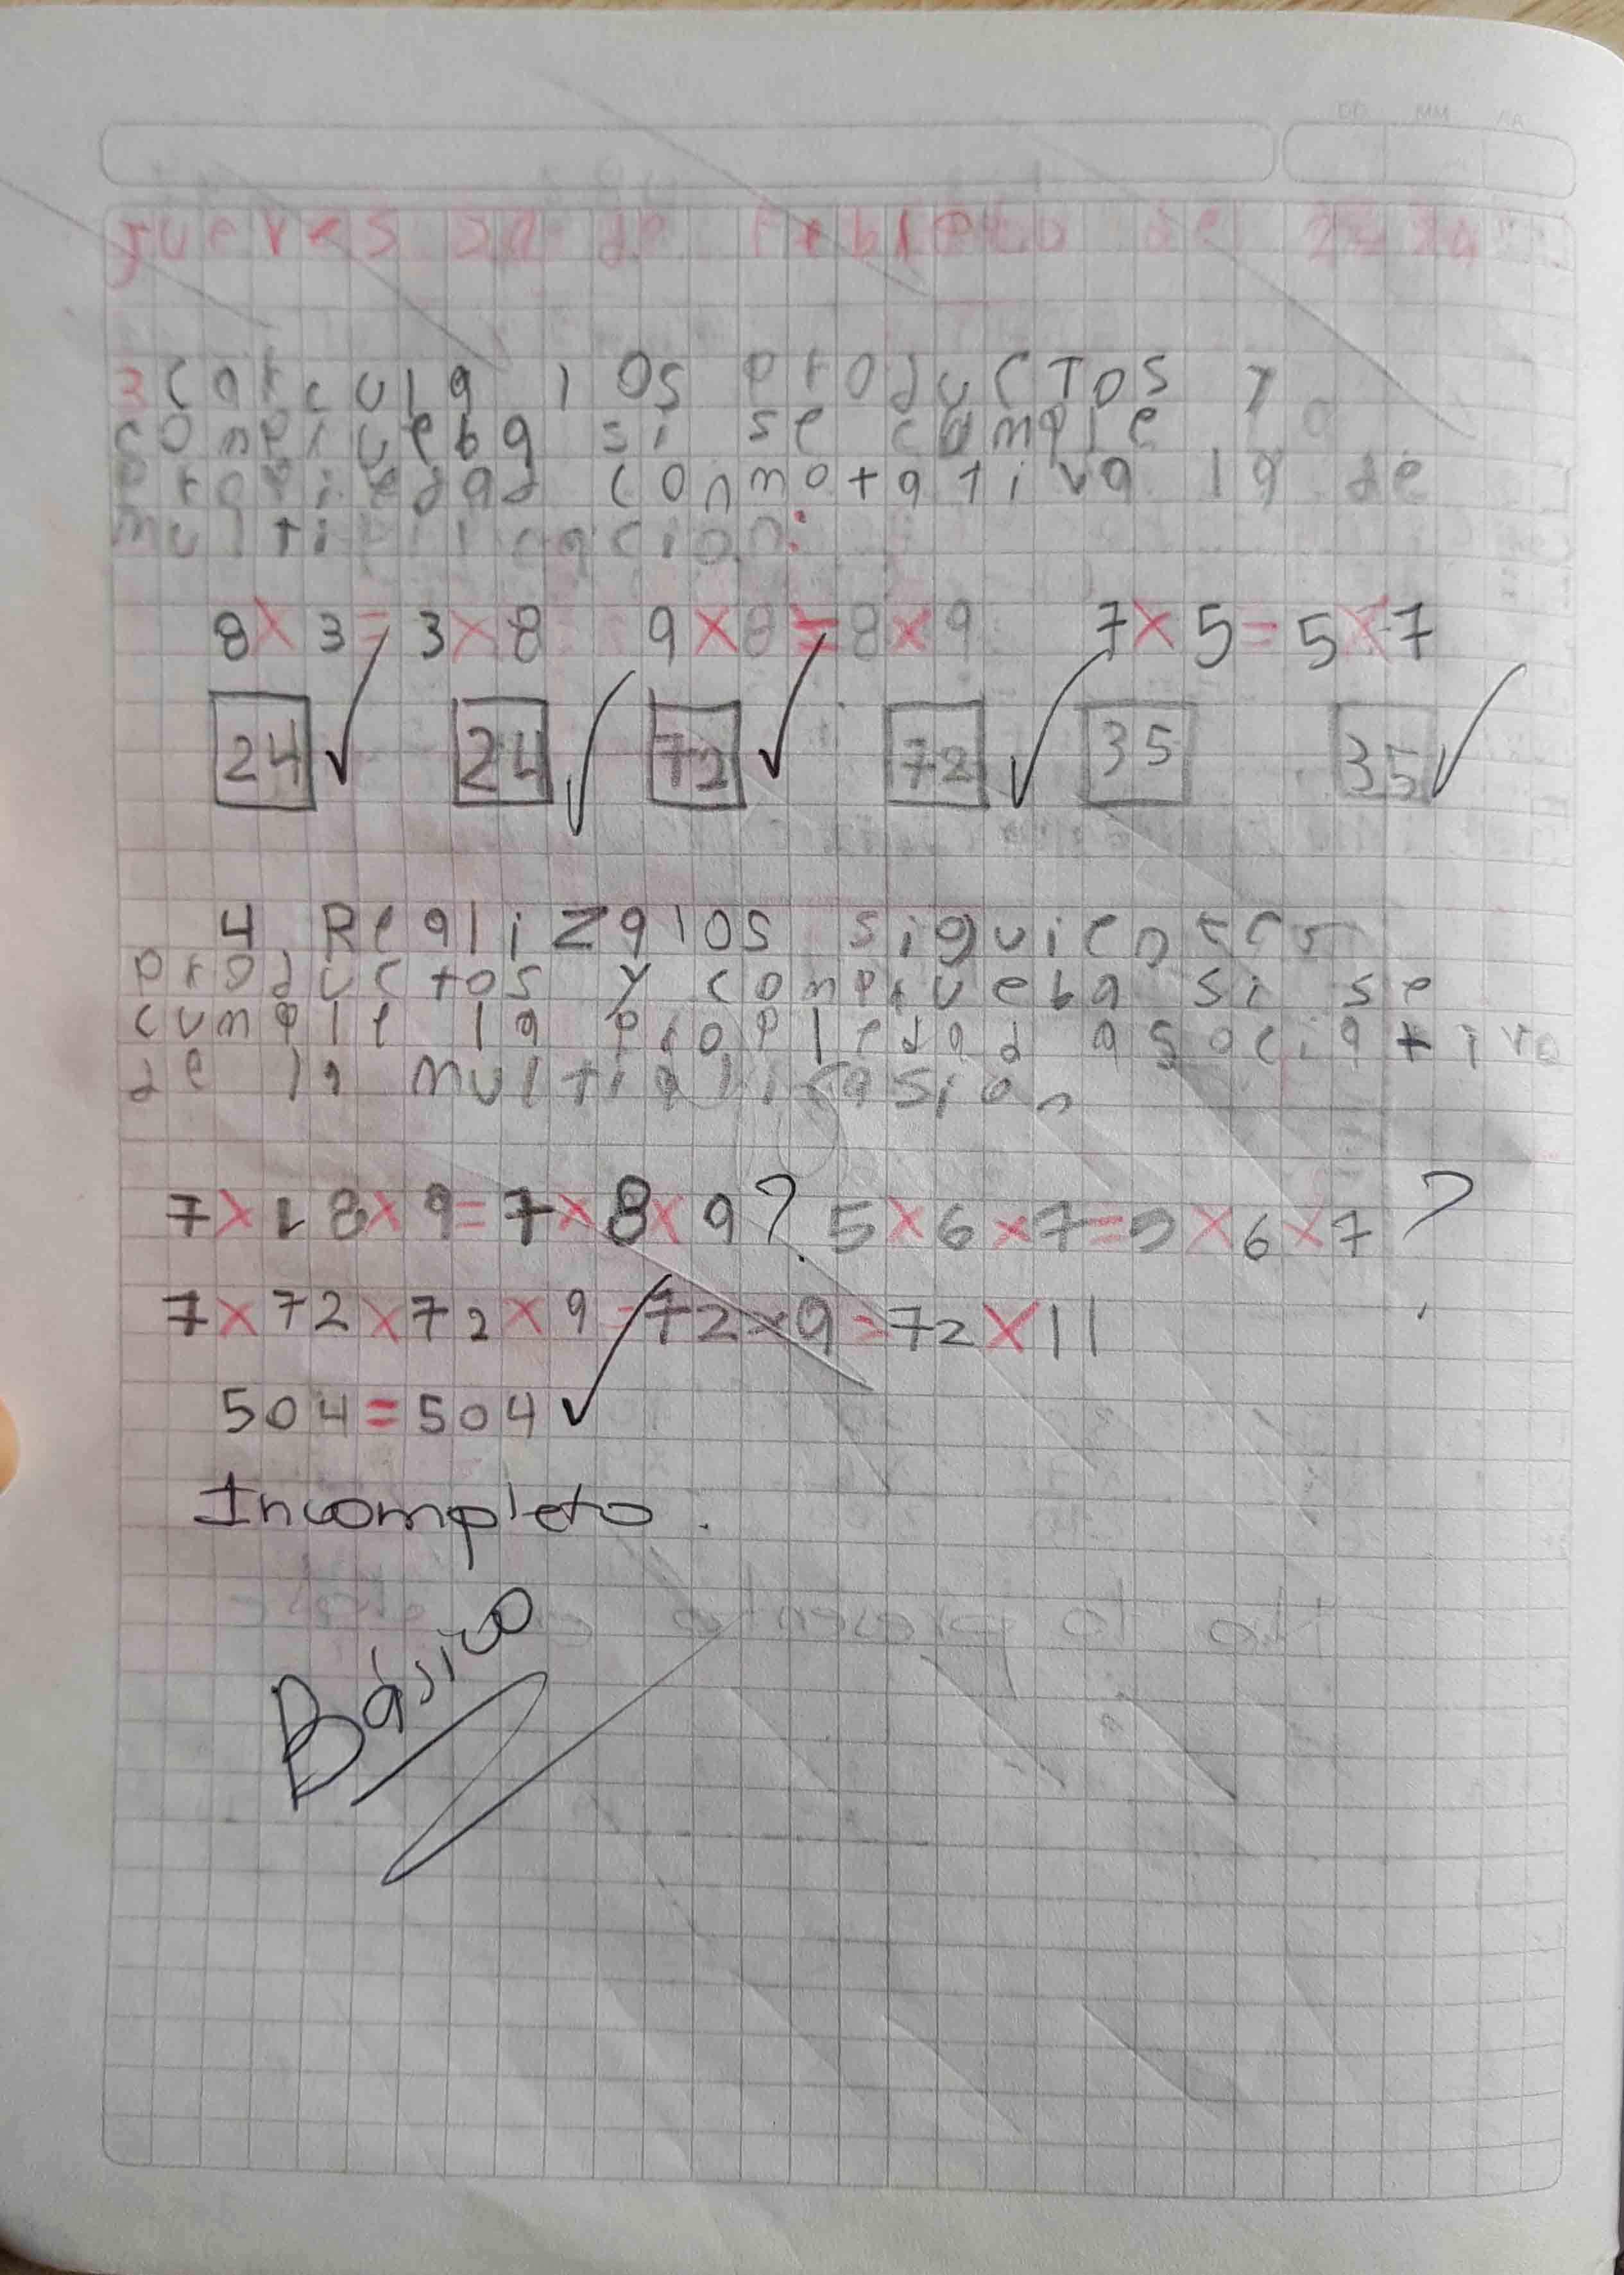 DD MM AA
jueves de febrero del
3 Carcula los productos y
conprueba si se cumple
propiedad conmotativa la de
multiplicacion:
8 x 3 = 3 x 8 9 x 8 = 8 x 9 7 x 5 = 5 x 7
24 24 72 72 35 35
4 Realiza los siguientes
productos y conprueba si se
cumple la propiedad asociativa
de la multiplicasion
7 x 8 x 9 = 7 x 8 x 9 ? 5 x 6 x 7 = 5 x 6 x 7 ?
7 x 72 x 72 x 9 = 72 x 9 = 72 x 11
504 = 504
Incompleto.
Básico